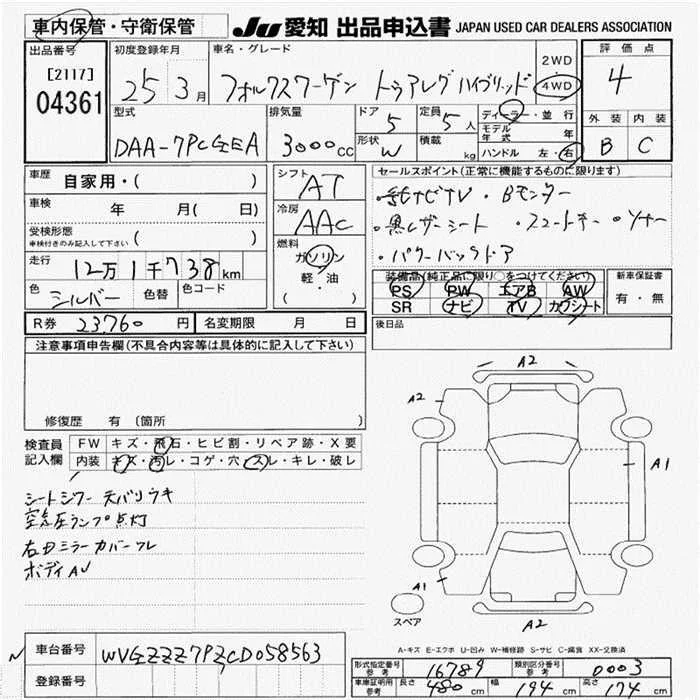 車内保管・守衛保管
JU 愛知 出品申込書 JAPAN USED CAR DEALERS ASSOCIATION
出品番号 初度登録年月 車名・グレード 評価点
[2117] 04361
25 3月 フォルクスワーゲン トゥアレグ ハイブリッド 2WD 4WD 4
型式 排気量 ドア 定員 ディーラー・並行 外装 内装
DAA-7PCGEA 3000cc 5 5人 モデル年式 年 B C
形状 W 積載 kg ハンドル 左・右
車歴 自家用・( ) シフト AT セールスポイント(正常に機能するものに限ります)
車検 年 月( 日) 冷房 AAC ・純ナビTV ・Bモニター
受検形態 車検付きのみ記入して下さい ( ) 燃料 ガソリン 軽・油 ・黒レザーシート ・スマートキー ・ソナー
・パワーバックドア
走行 12万1千738km
装備品(純正品に限り○をつけてください) 新車保証書
色 シルバー 色替 色コード PS PW エアB AW 有・無
SR ナビ TV カワシート
R券 23,760円 名変期限 月 日 後日品
注意事項申告欄(不具合内容等は具体的に記入して下さい)
修復歴 有 (箇所 )
検査員記入欄 FW キズ・飛石・ヒビ割・リペア跡・X要
内装 キズ・汚レ・コゲ・穴・スレ・キレ・破レ
シートシワー 天バリウキ
空気圧ランプ点灯
右Dミラーカバーワレ
ボディAU
A2
A2
A1
A1
A2
スペア
A-キズ E-エクボ U-凹み W-補修跡 S-サビ C-腐食 XX-交換済
車台番号 WVGZZZ7PZCD058563
登録番号
形式指定番号 参考 16789 類別区分番号 参考 0003
車庫証明用 参考 長さ 480cm 幅 194cm 高さ 174cm